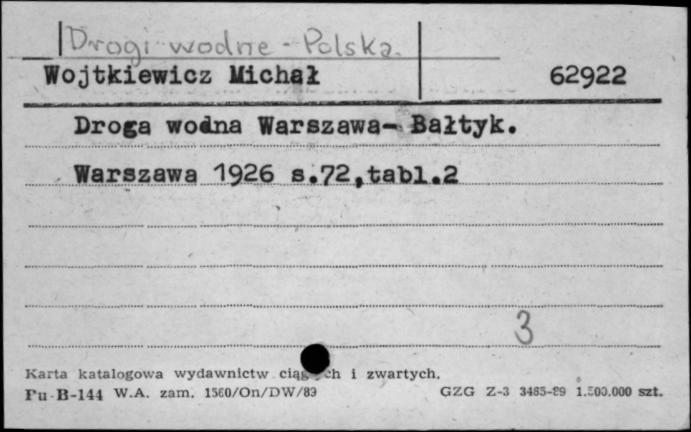 Drogi wodne - Polska.
Wojtkiewicz Michał 62922
Droga wodna Warszawa- Bałtyk.
Warszawa 1926 s.72,tabl.2
3
Karta katalogowa wydawnictw i zwartych.
Pu-B-144 W.A. zam. 1560/On/DW/89 GZG Z-3 3485-89 1.500.000 szt.